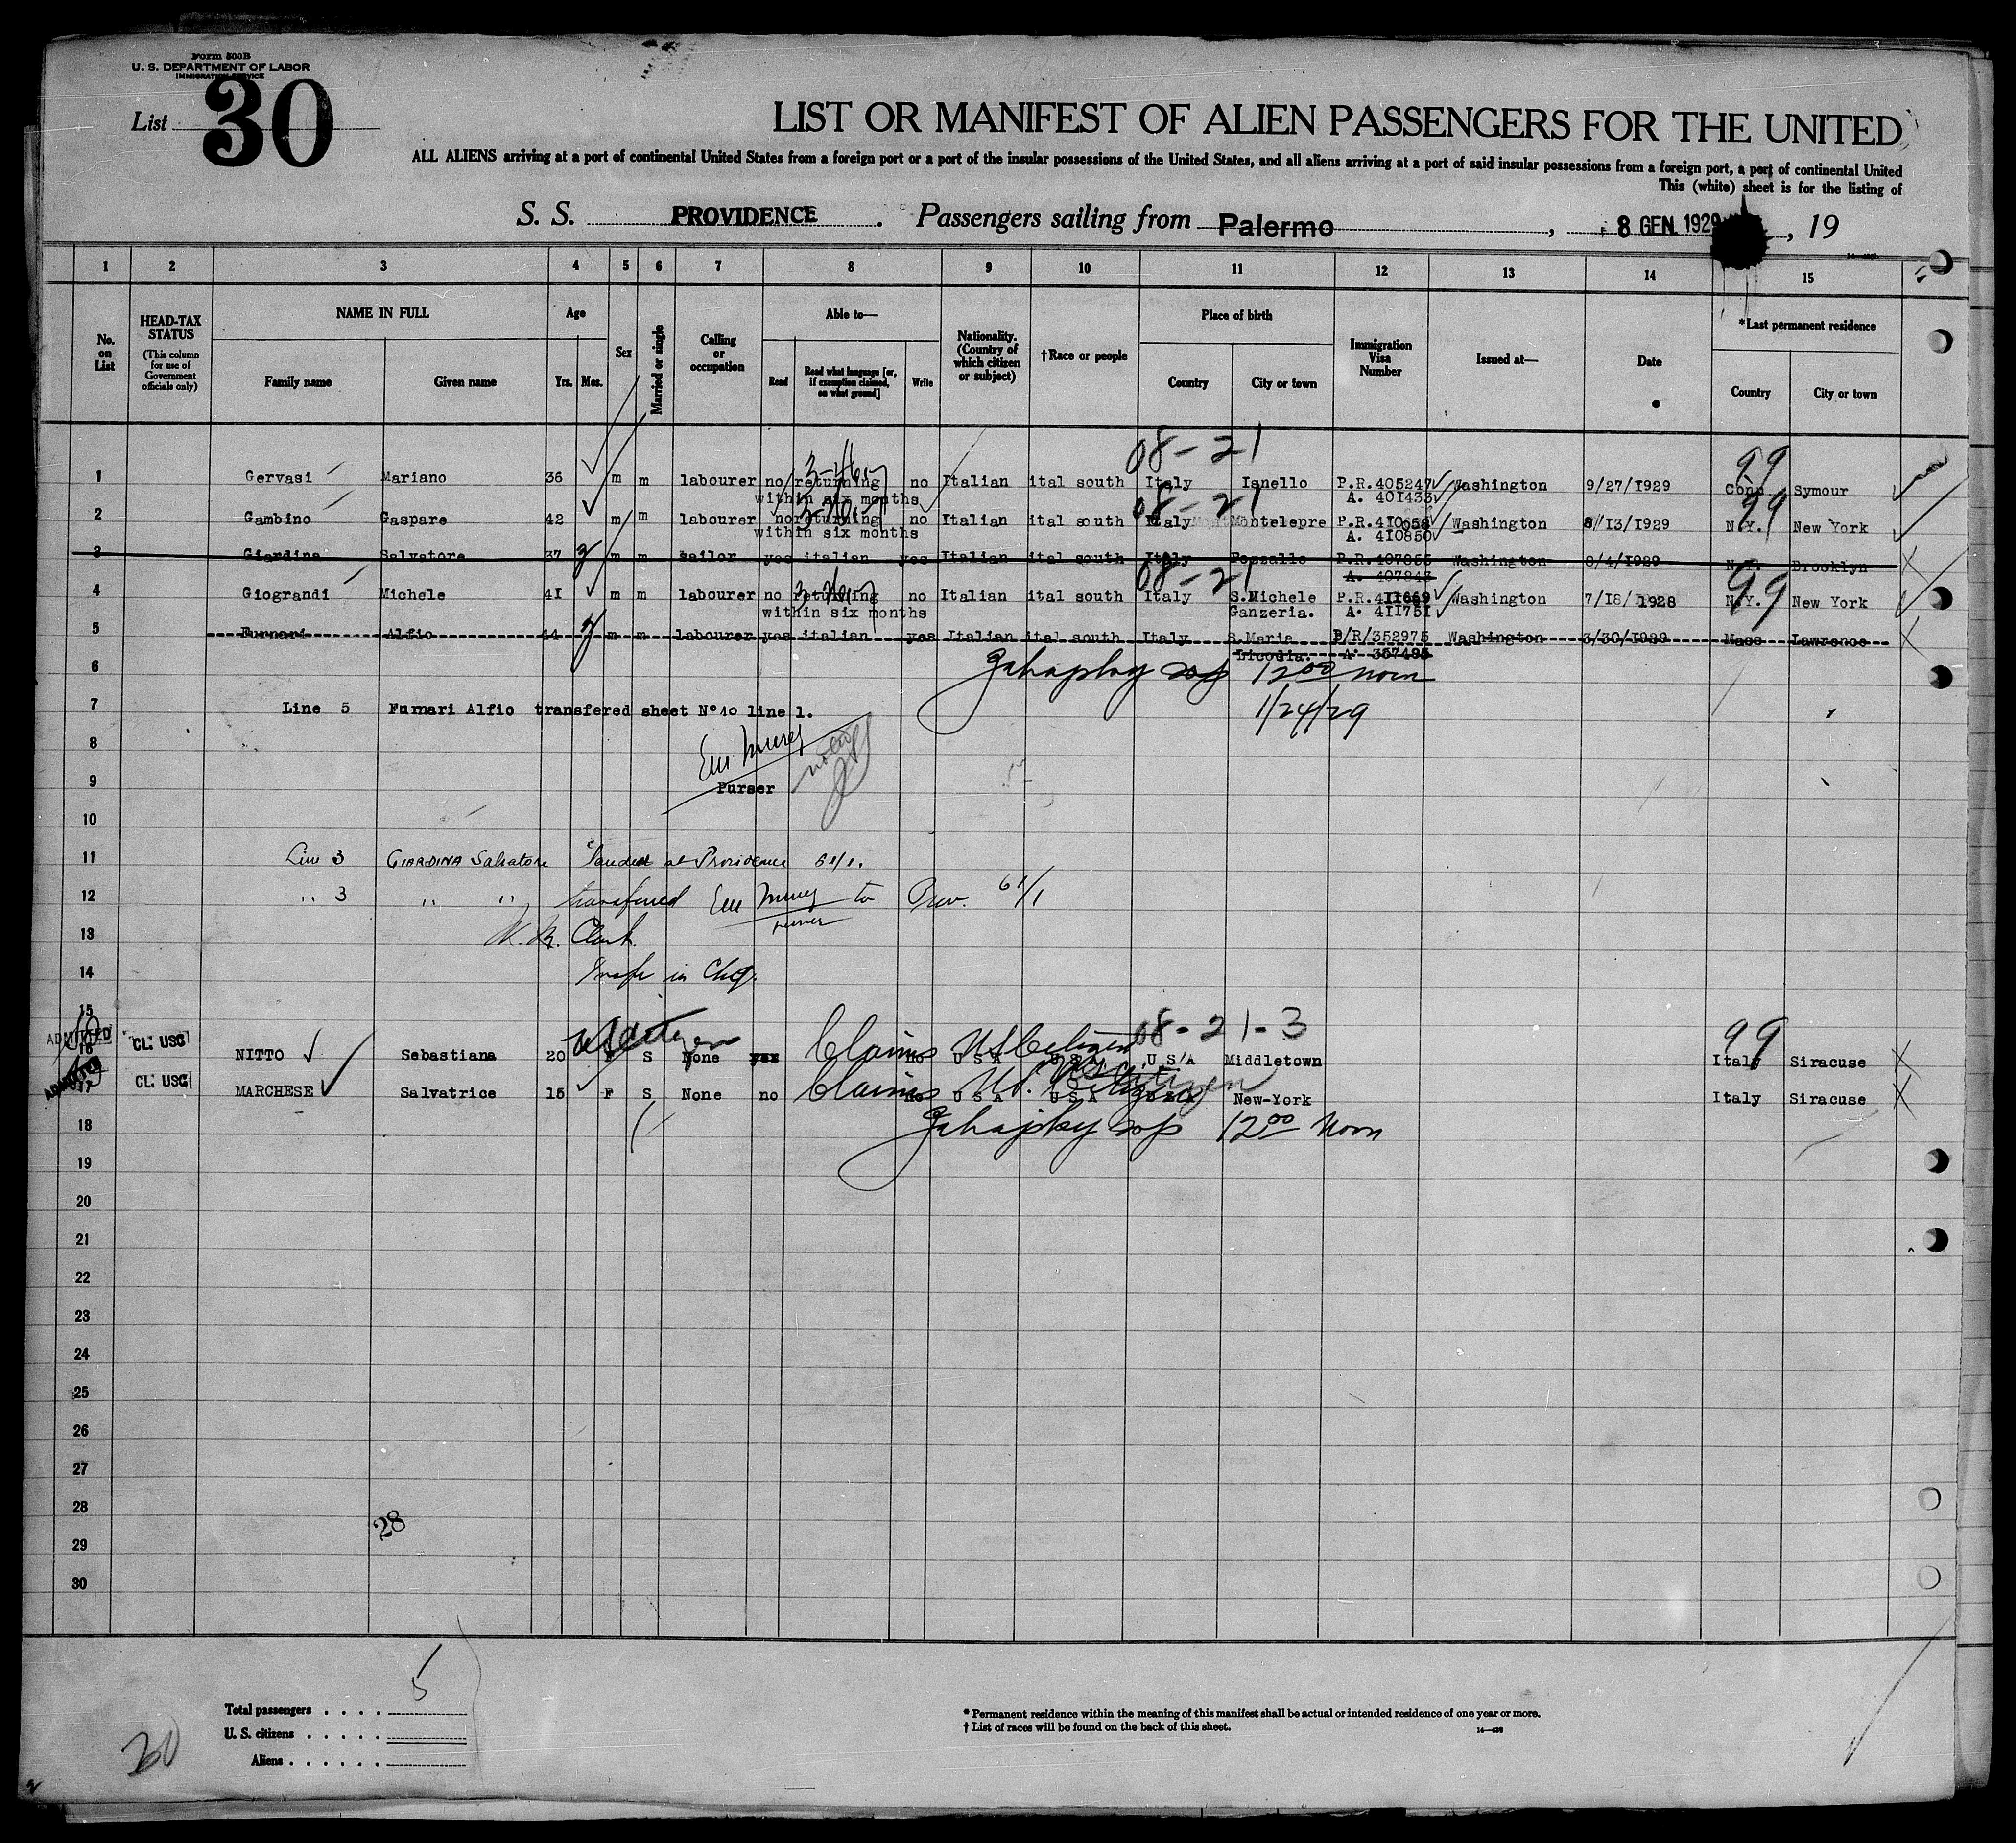 Form 500B
U. S. DEPARTMENT OF LABOR
IMMIGRATION SERVICE
List 30
LIST OR MANIFEST OF ALIEN PASSENGERS FOR THE UNITED
ALL ALIENS arriving at a port of continental United States from a foreign port or a port of the insular possessions of the United States, and all aliens arriving at a port of said insular possessions from a foreign port, a port of continental United
This (white) sheet is for the listing of
S. S. PROVIDENCE. Passengers sailing from Palermo, 8 GEN. 1929, 19
1 2 3 4 5 6 7 8 9 10 11 12 13 14 15
No. on List
HEAD-TAX STATUS
(This column for use of Government officials only)
NAME IN FULL
Family name
Given name
Age
Yrs. Mos.
Sex
Married or single
Calling or occupation
Able to—
Read
Read what language [or, if exemption claimed, on what ground]
Write
Nationality. (Country of which citizen or subject)
†Race or people
Place of birth
Country
City or town
Immigration Visa Number
Issued at—
Date
*Last permanent residence
Country
City or town
08-21 99
1 Gervasi Mariano 36 m m labourer no returning no Italian ital south Italy Ianello P.R.405247 Washington 9/27/1929 Conn Symour
within six months A. 401433
08-21 99
2 Gambino Gaspare 42 m m labourer no returning no Italian ital south Italy Montelepre P.R.410058 Washington 8/13/1929 N.Y. New York
within six months A. 410850
3 Giardina Salvatore 37 m m sailor yes italian yes Italian ital south Italy Pozzallo P.R.407855 Washington 8/4/1929 N.Y. Brooklyn
A. 407843
08-21 99
4 Giograndi Michele 41 m m labourer no returning no Italian ital south Italy S.Michele P.R.411669 Washington 7/18/1928 N.Y. New York
within six months Ganzeria. A. 411751
5 Furnari Alfio 44 m m labourer yes italian yes Italian ital south Italy S.Maria P/R/352975 Washington 3/30/1929 Mass Lawrence
Licodia. A. 357495
6 12 00 noon
7 Line 5 Furnari Alfio transfered sheet N° 40 line 1. 1/24/29
8
9 Purser
10
11 Line 3 GIARDINA Salvatore landed at Providence
12 " 3 " " transferred to Prov.
13 Clark
14 Insp in Chg.
15
US Citizen 08-21-3 99
ADMITTED
16 CL: USC NITTO Sebastiana 20 F S None yes Claims US Citizen no USA USA USA Middletown Italy Siracuse
ADMITTED
17 CL: USC MARCHESE Salvatrice 15 F S None no Claims U.S. Citizen no USA USA USA New-York Italy Siracuse
US Citizen
18 12 00 Noon
19
20
21
22
23
24
25
26
27
28
28
29
30
Total passengers . . . . 5
U. S. citizens . . . . .
Aliens . . . . . .
30
* Permanent residence within the meaning of this manifest shall be actual or intended residence of one year or more.
† List of races will be found on the back of this sheet.